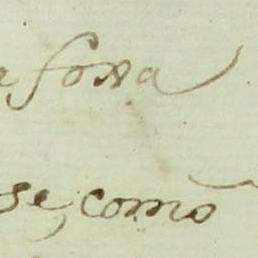 a forza
se, como